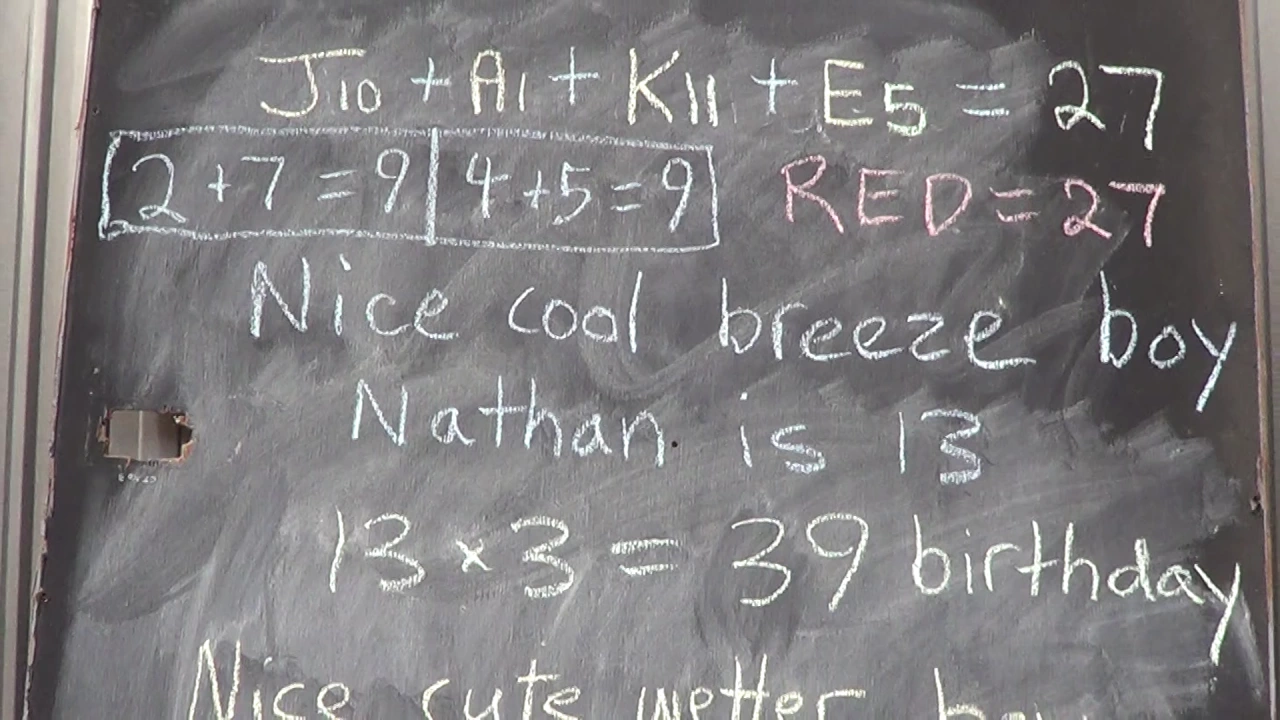 J10 + A1 + K11 + E5 = 27
2 + 7 = 9 | 4 + 5 = 9 RED = 27
Nice cool breeze boy
Nathan is 13
13 x 3 = 39 birthday
Nice cute wetter boy